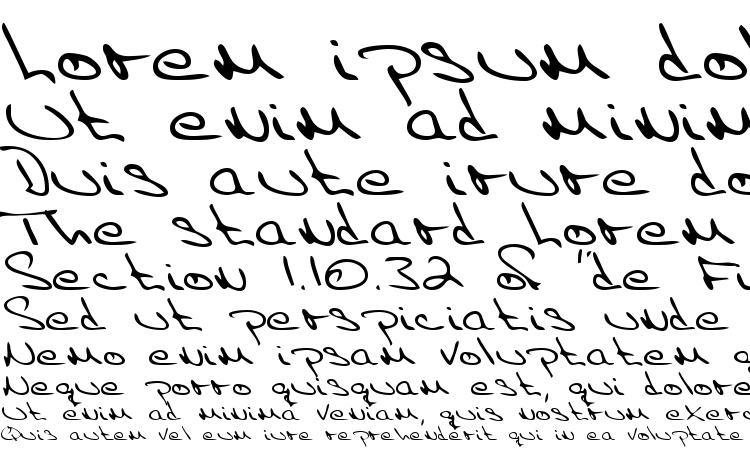 Lorem ipsum dol
Ut enim ad minim
Duis aute irure do
The standard Lorem
Section 1.10.32 of "de Fi
Sed ut perspiciatis unde
Nemo enim ipsam voluptatem q
Neque porro quisquam est, qui dolore
Ut enim ad minima veniam, quis nostrum exerc
Quis autem vel eum iure reprehenderit qui in ea voluptate